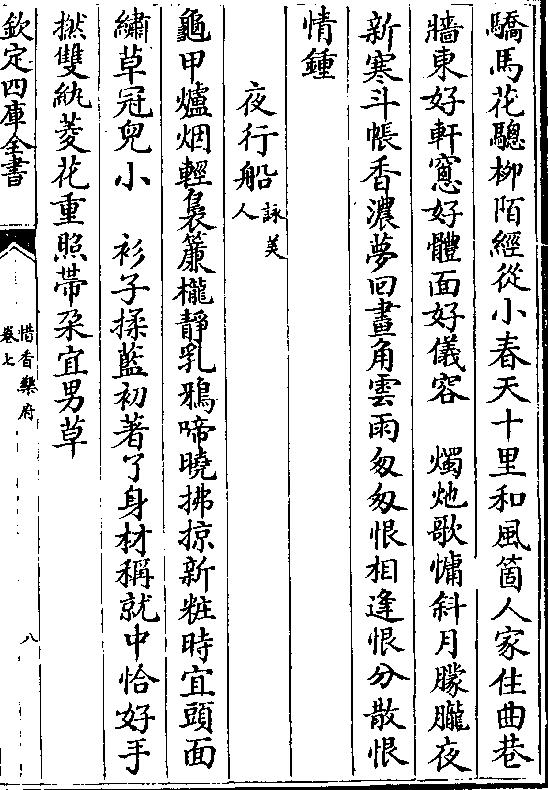 驕馬花驄柳陌經從小春天十里和風箇人家住曲巷
牆東好軒窻好體面好儀容　燭灺歌慵斜月朦朧夜
新寒斗帳香濃夢回畫角雲雨匆匆恨相逢恨分散恨
情鍾
夜行船詠美人
龜甲爐烟輕裊簾櫳靜乳鴉啼曉拂掠新粧時宜頭面
繡草冠兒小　衫子揉藍初著了身材稱就中恰好手
撚雙紈菱花重照帶朶宜男草
欽定四庫全書
惜香樂府
卷七
八